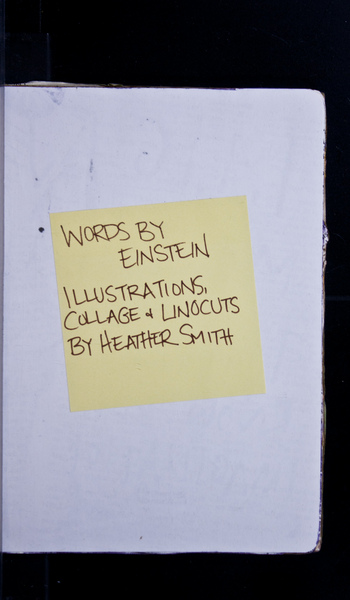 WORDS BY
EINSTEIN
ILLUSTRATIONS,
COLLAGE & LINOCUTS
BY HEATHER SMITH